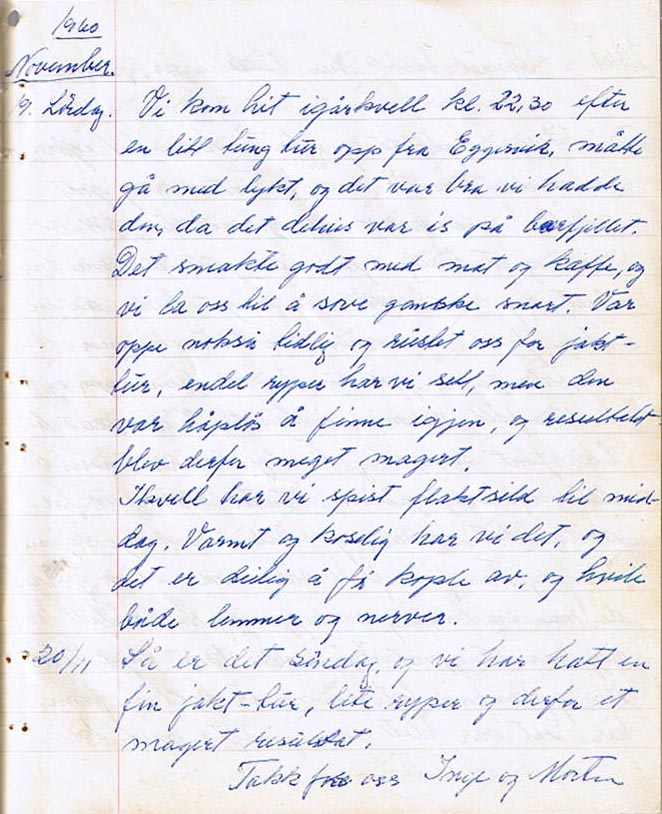 1960
November.
19. Lördag. Vi kom hit igårkvell kl. 22,30 efter
en litt tung tur opp fra Eggesvik, måtte
gå med lykt, og det var bra vi hadde
den, da det delvis var is på barfjellet.
Det smakte godt med mat og kaffe, og
vi la oss til å sove ganske snart. Var
oppe nokså tidlig og rustet oss for jakt-
tur, endel ryper har vi sett, men den
var håplös å finne igjen, og resultatet
blev derfor meget magert.
Ikvell har vi spist flaktsild til mid-
dag. Varmt og koselig har vi det, og
det er deilig å få kople av, og hvile
både lemmer og nerver.
20/11 Så er det söndag, og vi har hatt en
fin jakt-tur, lite ryper og derfor et
magert resultat.
Takk for oss Inge og Morten